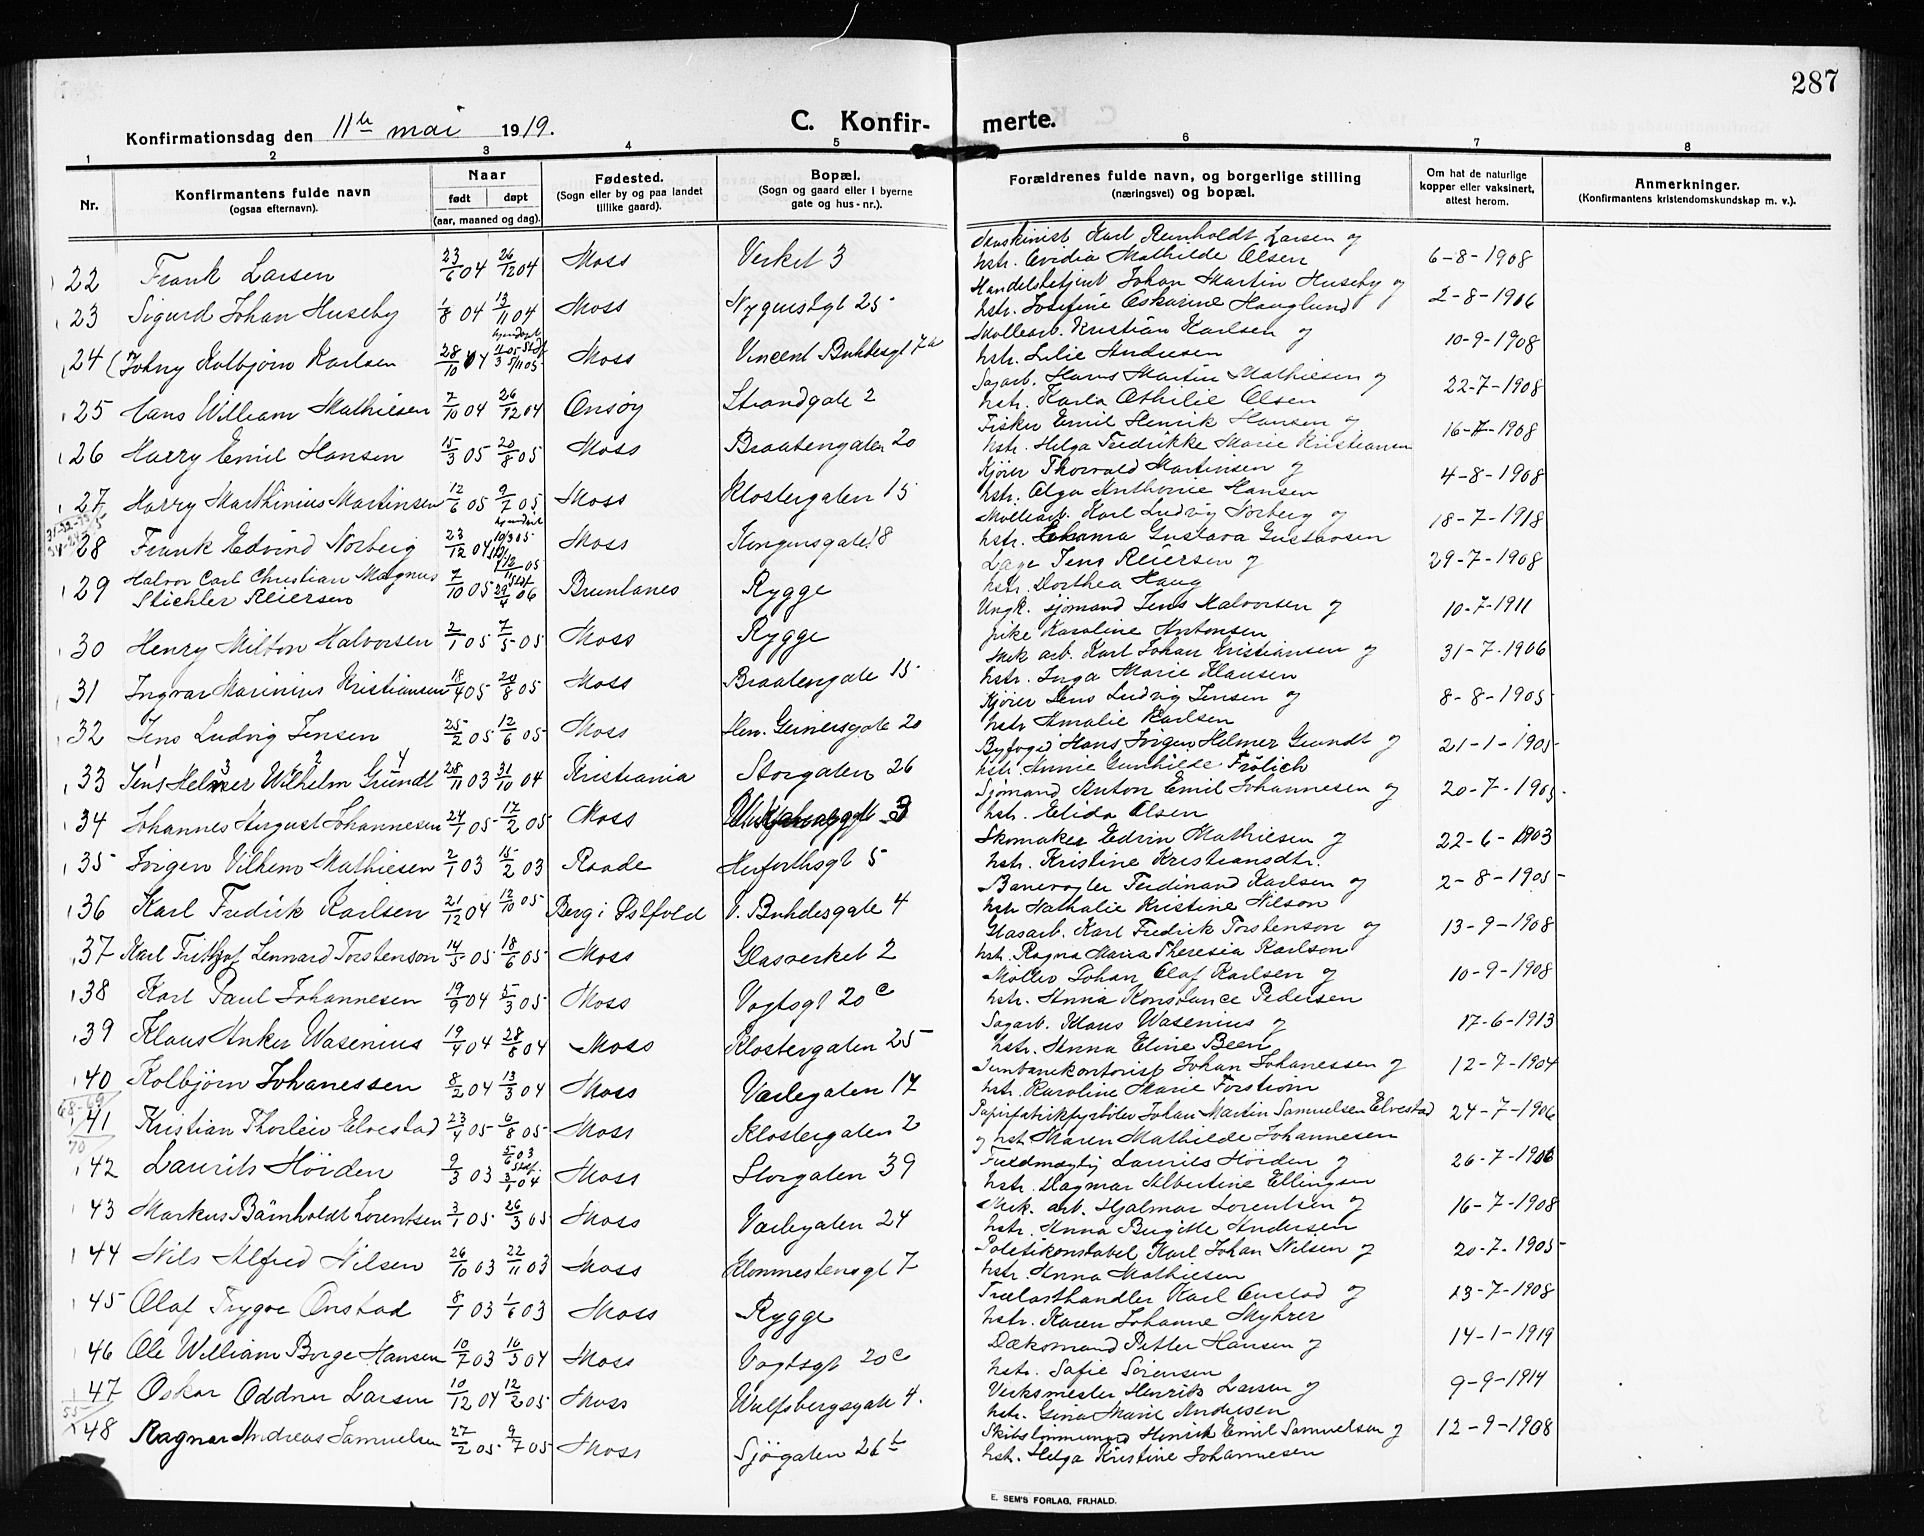 287
Konfirmationsdag den 11te mai 1919.
C. Konfir-
merte.
1 2 3 4 5 6 7 8
Nr.
Konfirmantens fulde navn
(ogsaa efternavn).
Naar
født døpt
(aar, maaned og dag).
Fødested.
(Sogn eller by og paa landet
tillike gaard).
Bopæl.
(Sogn og gaard eller i byerne
gate og hus-nr.).
Forældrenes fulde navn, og borgerlige stilling
(næringsvei) og bopæl.
Om hat de naturlige
kopper eller vaksinert,
attest herom.
Anmerkninger.
(Konfirmantens kristendomskundskap m. v.).
22 Frank Larsen 23/6 04 26/12 04 Moss Verket 3 Karl Reinholdt Larsen og 6-8-1908
hstr. Ovidia Mathilde Olsen
23 Sigurd Johan Huseby 1/8 04 13/11 04 Moss Nyquistgt 25 Handelsbetjent Johan Martin Huseby og 2-8-1906
hstr. Josefine Oskarine Hauglund
24 Johny Kolbjørn Karlsen 28/10 04 Moss Vincent Buhdesgt 7a Møllearb. Kristian Karlsen og 10-9-1908
hstr. Lilie Andresen
25 Hans William Mathiesen 7/10 04 26/12 04 Onsøy Strandgate 2 Sagarb. Hans Martin Mathiesen og 22-7-1908
hstr. Karla Othilie Olsen
26 Harry Emil Hansen 15/3 05 20/8 05 Moss Braatengaten 20 Fisker Emil Henrik Hansen og 16-7-1908
hstr. Helga Fredrikke Marie Kristiansen
27 Harry Marthinius Martinsen 12/6 05 9/7 05 Moss Klostergaten 15 Kjører Thorvald Martinsen og 4-8-1908
hstr. Olga Anthonie Hansen
28 Frank Edvind Norberg 23/12 04 Moss Kongensgate 18 Møllearb. Karl Ludvig Norberg og 18-7-1918
hstr. Gustava Gustavsen
29 Halvor Carl Christian Magnus 7/10 05 29/4 06 Brunlanes Rygge Læge Jens Reiersen og 29-7-1908
Stichler Reiersen hstr. Dorthea Haug
30 Henry Milton Halvorsen 2/1 05 7/5 05 Moss Rygge Ungk. sjømand Jens Halvorsen og 10-7-1911
pike Karoline Antonsen
31 Ingvar Marinius Kristiansen 18/4 05 20/8 05 Moss Braatengate 15 Mek arb. Karl Johan Kristiansen og 31-7-1906
hstr. Inga Marie Klausen
32 Jens Ludvig Jensen 25/2 05 12/6 05 Moss Hen. Gernersgate 20 Kjører Jens Ludvig Jensen og 8-8-1905
hstr Amalie Karlsen
33 Jens Helmer Wilhelm Grundt 28/11 03 31/10 04 Kristiania Storgaten 26 Byfoged Hans Jørgen Helmer Grundt og 21-1-1905
hstr. Annie Gunhilde Frölich
34 Johannes August Johannesen 24/1 05 12/2 05 Moss 3 Sjømand Anton Emil Johannesen og 20-7-1905
hstr. Elida Olsen
35 Jørgen Vilhem Mathiesen 2/1 03 15/2 03 Raade Herforthsgt 5 Skomaker Edvin Mathiesen og 22-6-1903
hstr. Kristine Kristiansdtr.
36 Karl Fredrik Karlsen 21/12 04 12/10 05 Berg i Østfold V. Buhdesgate 4 Banevogter Ferdinand Karlsen og 2-8-1905
hstr Nathalie Kristine Nilson
37 Karl Frithjof Lennard Torstenson 14/5 05 18/6 05 Moss Glasverket 2 Glasarb. Karl Fredrik Torstenson og 13-9-1908
hstr. Ragna Maria Theresia Karlson
38 Karl Paul Johannesen 19/9 04 5/3 05 Moss Vogtsgt 20c Møller Johan Olaf Karlsen og 10-9-1908
hstr. Anna Konstance Pedersen
39 Klaus Anker Wasenius 19/4 04 28/8 04 Moss Klostergaten 25 Sagarb. Klaus Wasenius og 17-6-1913
hstr. Anna Eline Been
40 Kolbjørn Johanessen 8/2 04 13/3 04 Moss Varlegaten 17 Jernbanekontorist Johan Johanessen og 12-7-1904
hstr. Karoline Marie Torstrom
41 Kristian Thorleiv Elvestad 23/4 05 6/8 05 Moss Klostergaten 2 Papirfabrikfyrbøter Johan Martin Samuelsen Elvestad 24-7-1906
og hst. Maren Mathilde Johannesen
42 Laurits Høiden 9/3 03 5/6 03 Moss Storgaten 39 Fuldmægtig Laurits Høiden og 26-7-1906
hstr. Dagmar Albertine Ellingsen
43 Markus Bärnholdt Lorentsen 3/1 05 26/3 05 Moss Varlegaten 24 Mek. arb. Hjalmar Lorentsen og 16-7-1908
hstr. Anna Birgitte Andersen
44 Nils Alfred Nilsen 26/10 03 22/11 03 Moss Klommestensgt 7 Politikonstabel Karl Johan Nilsen og 20-7-1905
hstr. Anna Mathiesen
45 Olaf Trygve Onstad 8/1 03 1/6 03 Moss Rygge Trælasthandler Karl Onstad og 13-7-1908
hstr. Karen Johanne Myhrer
46 Ole William Borge Hansen 10/7 03 16/5 04 Moss Vogtsgt 20c Dæksmand Petter Hansen og 14-1-1919
hstr. Sofie Sørensen
47 Oskar Oddner Larsen 10/12 04 12/2 05 Moss Wulfsbergsgate 4. Verksmester Henrik Larsen og 9-9-1914
hstr. Gina Marie Andersen
48 Ragnar Andreas Samuelsen 27/2 05 9/7 05 Moss Sjøgaten 26b Skibstømmermand Henrik Emil Samuelsen og 12-9-1908
hst. Helga Kristine Johannesen
E. SEM'S FORLAG, FR.HALD.